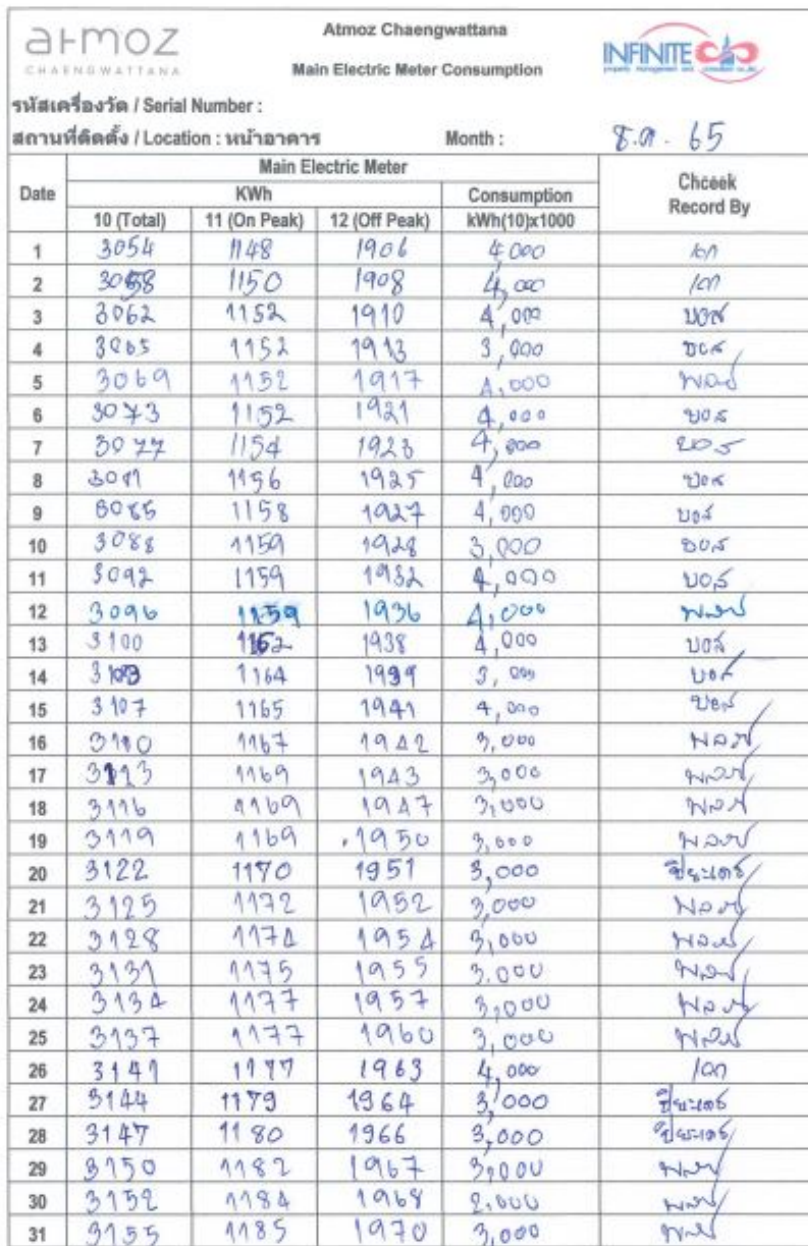 atmoz
CHAENGWATTANA
Atmoz Chaengwattana
Main Electric Meter Consumption
INFINITE
รหัสเครื่องวัด / Serial Number :
สถานที่ติดตั้ง / Location : หน้าอาคาร Month : ธ.ค. 65
Date Main Electric Meter Chceek Record By
KWh Consumption
10 (Total) 11 (On Peak) 12 (Off Peak) kWh(10)x1000
1 3054 1148 1906 4,000 เอก
2 3058 1150 1908 4,000 เอก
3 3062 1152 1910 4,000 บอส
4 3065 1152 1913 3,000 บอส
5 3069 1152 1917 4,000
6 3073 1152 1921 4,000 บอส
7 3077 1154 1923 4,000 บอส
8 3081 1156 1925 4,000 บอส
9 3085 1158 1927 4,000 บอส
10 3088 1159 1928 3,000 บอส
11 3092 1159 1932 4,000 บอส
12 3096 1159 1936 4,000
13 3100 1162 1938 4,000 บอส
14 3103 1164 1939 3,000 บอส
15 3107 1165 1941 4,000 บอส
16 3110 1167 1942 3,000
17 3113 1169 1943 3,000
18 3116 1169 1947 3,000
19 3119 1169 1950 3,000
20 3122 1170 1951 3,000 ปิยะเดช
21 3125 1172 1952 3,000
22 3128 1174 1954 3,000
23 3131 1175 1955 3.000
24 3134 1177 1957 3,000
25 3137 1177 1960 3,000
26 3141 1177 1963 4,000 เอก
27 3144 1179 1964 3,000 ปิยะเดช
28 3147 1180 1966 3,000 ปิยะเดช
29 3150 1182 1967 3,000
30 3152 1184 1968 2,000
31 3155 1185 1970 3,000